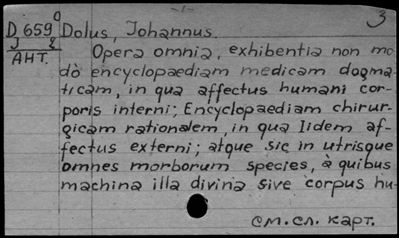 3
D 659⁰ Dolus, Johannus.
J 2
АНТ. Opera omnia, exhibentia non mo
dò encyclopaediam medicam dogma-
ticam, in qua affectus humani cor-
poris interni; Encyclopaediam chirur-
gicam rationalem, in qua Iidem af-
fectus externi; atque sic in utrisque
omnes morborum species, à quibus
machina illa divina sive corpus hu-
см. сл. карт.